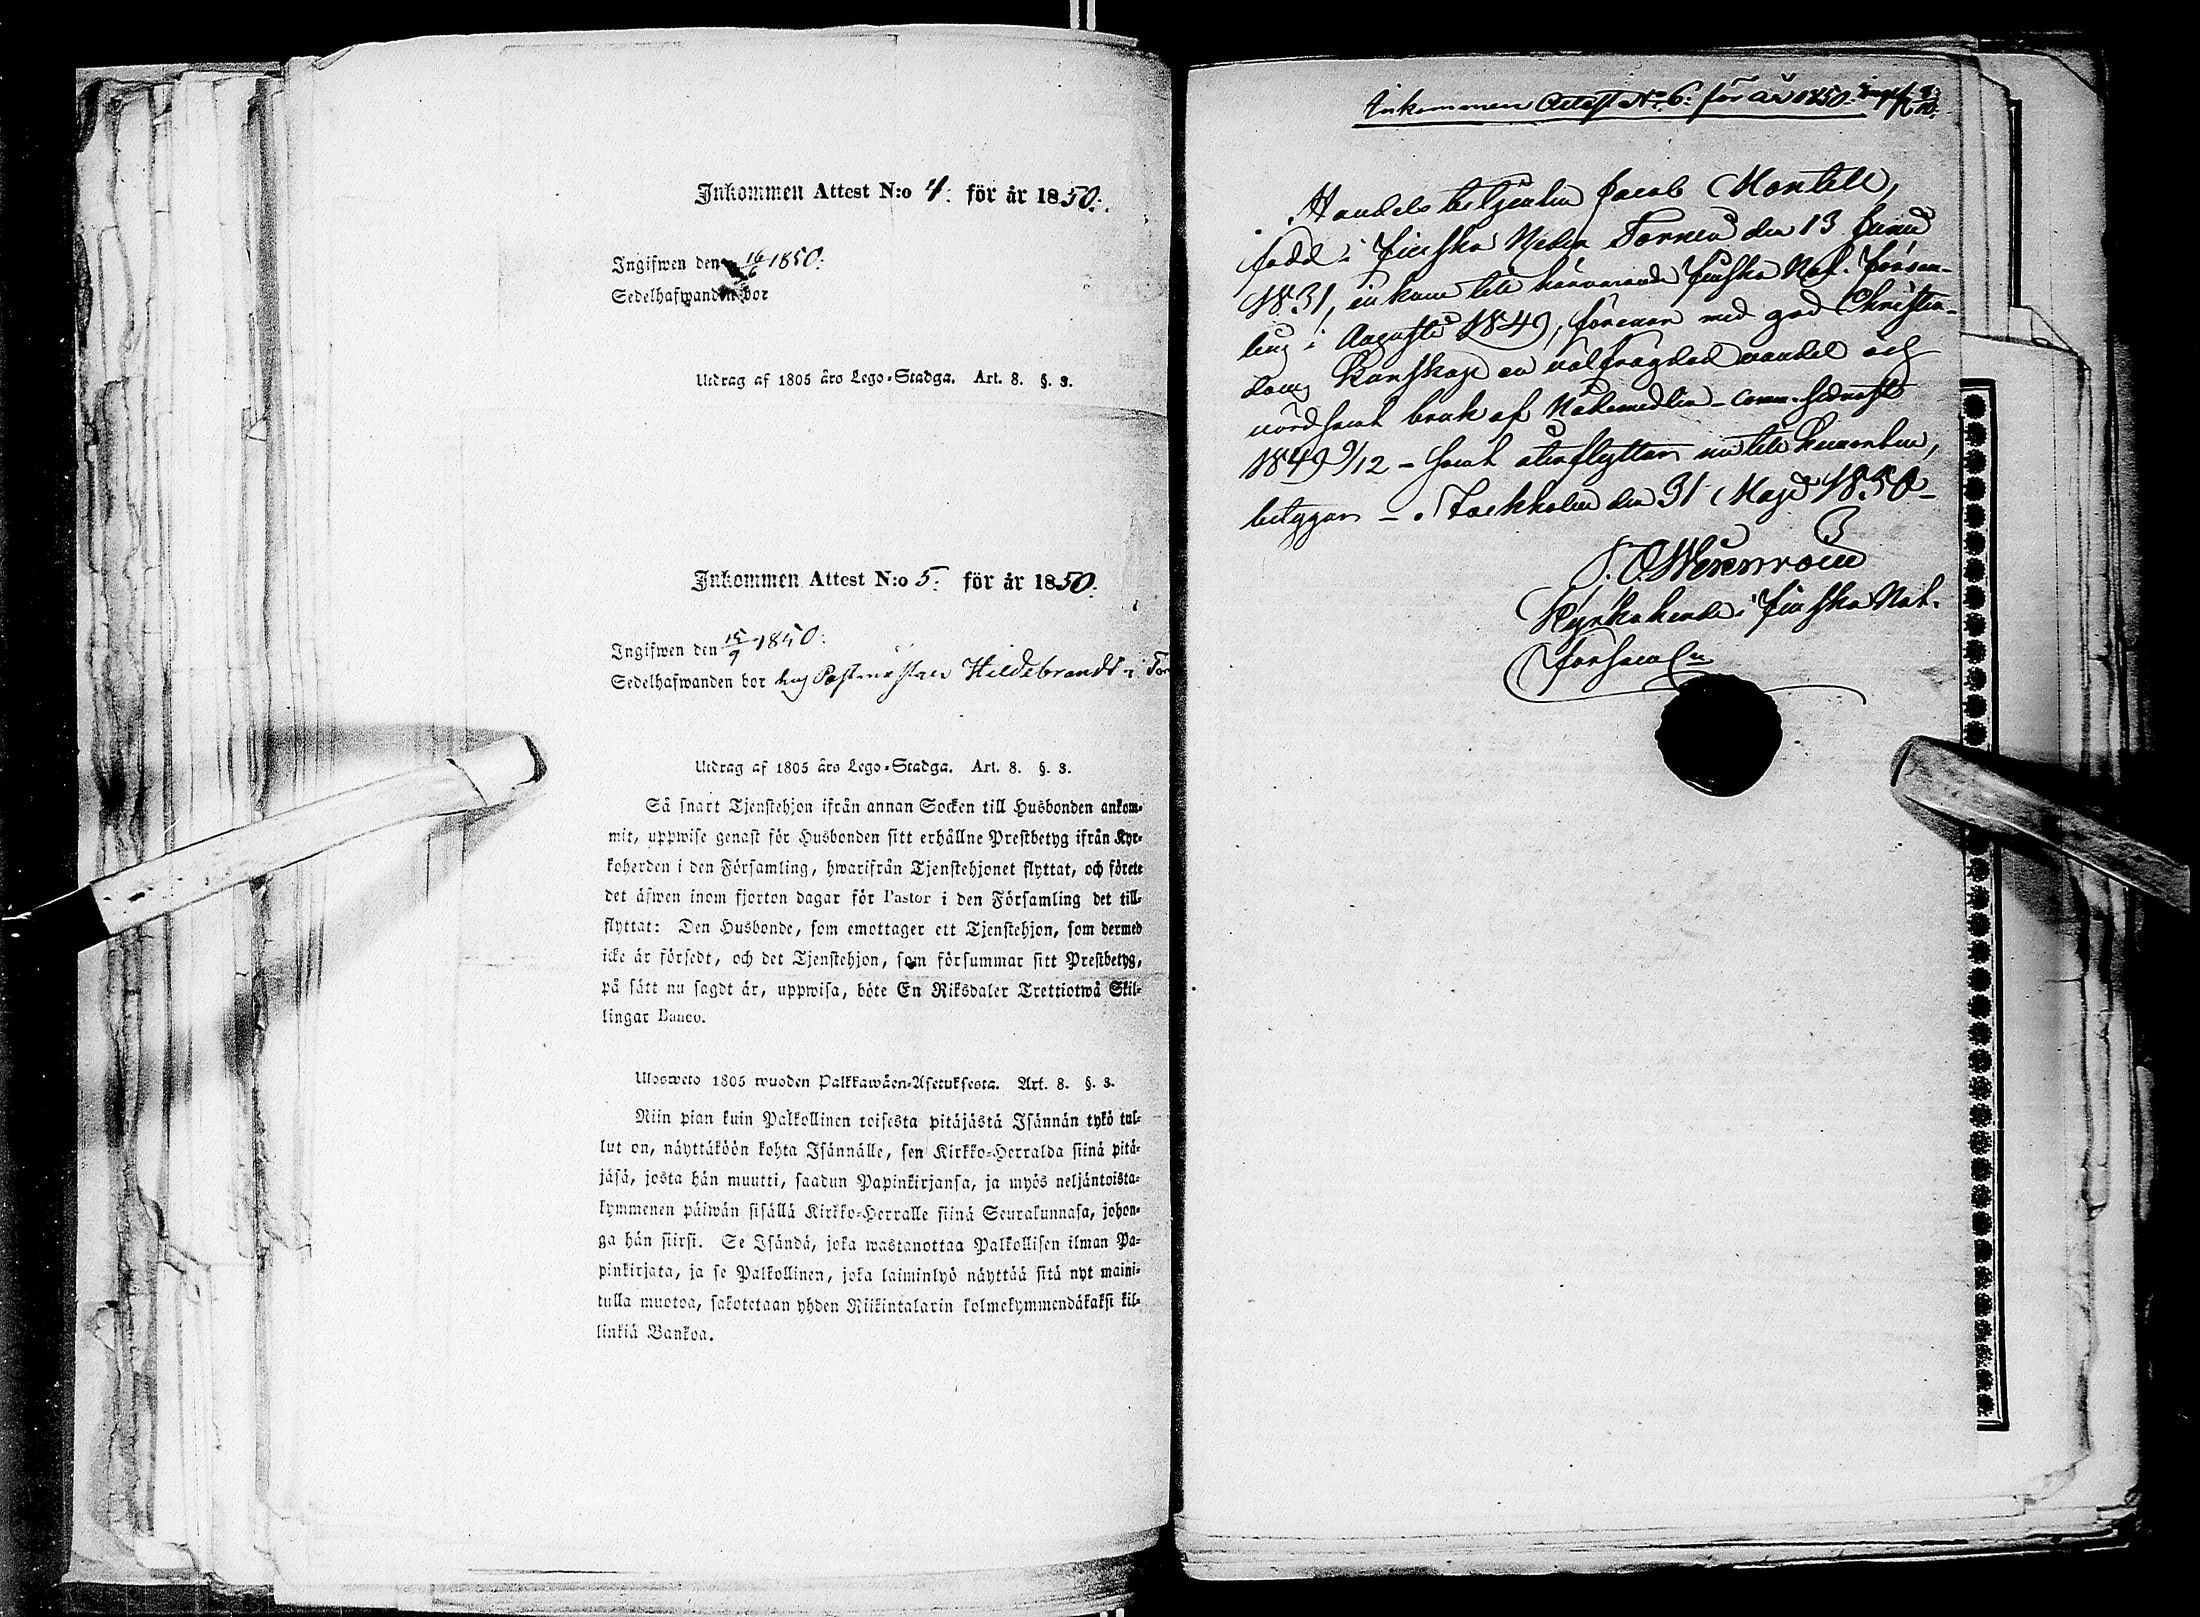 Inkommen Attest N:o 4. för år 1850.
Ingifwen den 16/6 1850.
Sedelhafwanden bor
Utdrag af 1805 års Lego-Stadga. Art. 8. §. 3.
Inkommen Attest N:o 5. för år 1850.
Ingifwen den 15/9 1850.
Sedelhafwanden bor hos Postmästare Hildebrandt i Tor
Utdrag af 1805 års Lego-Stadga. Art. 8. §. 3.
Så snart Tjenstehjon ifrån annan Socken till Husbonden ankom-
mit, uppwise genast för Husbonden sitt erhållne Prestbetyg ifrån Kyr-
koherden i den Församling, hwarifrån Tjenstehjonet flyttat, och förete
det äfwen inom fjorton dagar för Pastor i den Församling det till-
flyttat: Den Husbonde, som emottager ett Tjenstehjon, som dermed
icke är försedt, och det Tjenstehjon, som försummar sitt Prestbetyg,
på sätt nu sagdt är, uppwisa, böte En Riksdaler Trettiotwå Skil-
lingar Banco.
Ulosweto 1805 wuoden Palkkawäen-Asetuksesta. Art. 8. §. 3.
Niin pian kuin Palkollinen toisesta pitäjästä Isännän tykö tul-
lut on, näyttäköön kohta Isännälle, sen Kirkko-Herralda siinä pitä-
jäsä, josta hän muutti, saadun Papinkirjansa, ja myös neljäntoista-
kymmenen päiwän sisällä Kirkko-Herralle siinä Seurakunnasa, johon-
ga hän siirsi. Se Isändä, joka wastanottaa Palkollisen ilman Pa-
pinkirjata, ja se Palkollinen, joka laiminlyö näyttää sitä nyt maini-
tulla muotoa, sakotetaan yhden Riikintalarin kolmekymmendäkaksi kil-
linkiä Bankoa.
Inkommen Attest No 6. för år 1850.
Handels betjenten Jacob Montell,
född i finska Neder Torneå den 13 Junii
1831, inkom till härvarande finska Nat. Försam-
ling i Augusti 1849, förenar med god Christen-
doms Kunskap en välfrägdad vandel och
vördsamt bruk af Nådemedlen - comm. sednast
1849 9/12 - samt återflyttar nu till hemorten,
betygar - Stockholm den 31 Maji 1850 -
Kyrkoherde i finska Nat.
Församl:n